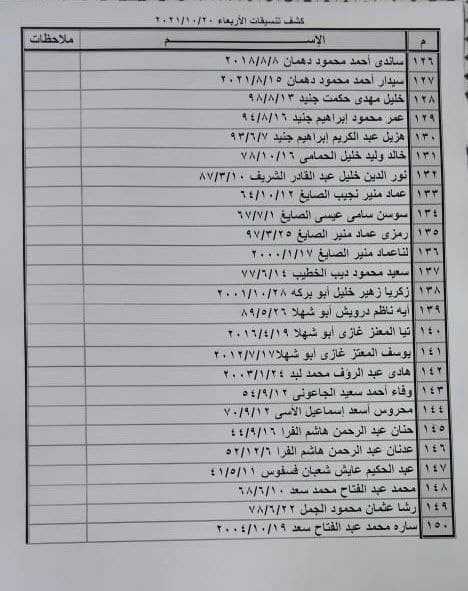 كشف تنسيقات الأربعاء ٢٠٢١/١٠/٢٠
م الاســـــــــم ملاحظات
١٢٦ ساندى أحمد محمود دهمان ٢٠١٨/٨/٨
١٢٧ سيدار أحمد محمود دهمان ٢٠٢١/٨/١٥
١٢٨ خليل مهدى حكمت جنيد ٩٨/٨/١٣
١٢٩ عمر محمود إبراهيم جنيد ٩٤/٨/١٦
١٣٠ هزيل عبد الكريم إبراهيم جنيد ٩٣/٦/٧
١٣١ خالد وليد خليل الحمامى ٧٨/١٠/١٦
١٣٢ نور الدين خليل عبد القادر الشريف ٨٧/٣/١٠
١٣٣ عماد منير نجيب الصايغ ٦٤/١٠/١٢
١٣٤ سوسن سامى عيسى الصايغ ٦٧/٧/١
١٣٥ رمزى عماد منير الصايغ ٩٧/٣/٢٥
١٣٦ لناعماد منير الصايغ ٢٠٠٠/١/١٧
١٣٧ سعيد محمود ديب الخطيب ٧٧/٦/١٤
١٣٨ زكريا زهير خليل أبو بركه ٢٠٠١/١٠/٢٨
١٣٩ أيه ناظم درويش أبو شهلا ٨٩/٥/٢٦
١٤٠ تيا المعتز غازى أبو شهلا ٢٠١٦/٤/١٩
١٤١ يوسف المعتز غازى أبو شهلا٢٠١٢/٧/١٧
١٤٢ هادى عبد الرؤف محمد لبد ٢٠٠٣/١/٢٤
١٤٣ وفاء أحمد سعيد الجاعونى ٥٤/٩/١٢
١٤٤ محروس أسعد إسماعيل الأسى ٧٠/٩/١٢
١٤٥ حنان عبد الرحمن هاشم الفرا ٤٤/٩/١٦
١٤٦ عدنان عبد الرحمن هاشم الفرا ٥٢/١٢/٦
١٤٧ عبد الحكيم عايش شعبان فسفوس ٤١/٥/١١
١٤٨ محمد عبد الفتاح محمد سعد ٦٨/٦/١٠
١٤٩ رشا عثمان محمود الجمل ٧٨/٦/٢٢
١٥٠ ساره محمد عبد الفتاح سعد ٢٠٠٤/١٠/١٩